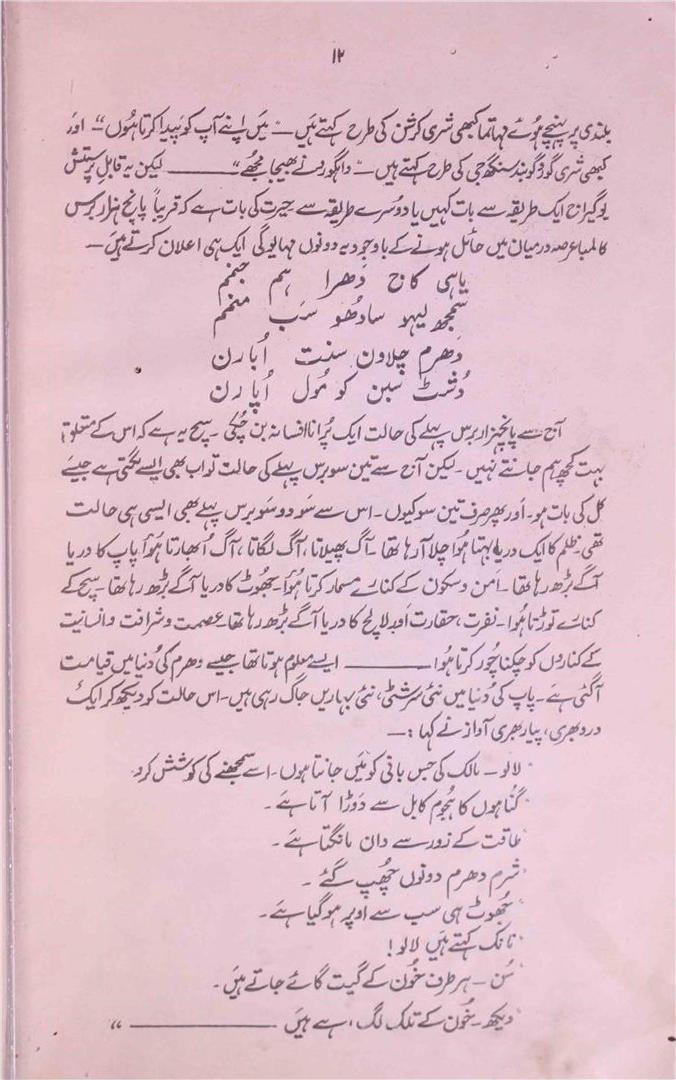 ۱۲
بلندی پر پہنچے ہوئے مہاتما کبھی شری کرشن کی طرح کہتے ہیں — میں اپنے آپ کو پیدا کرتا ہوں" اور
کبھی شری گورُو گوبند سنگھ جی کی طرح کہتے ہیں — داہگورو نے بھیجا مجھے" ——— لیکن یہ قابلِ پرستش
یوگیراج ایک طریقہ سے بات کہیں یا دوسرے طریقہ سے حیرت کی بات ہے کہ قریباً پانچ ہزار برس
کا لمبا عرصہ درمیان میں حائل ہونے کے باوجود یہ دونوں مہایوگی ایک ہی اعلان کرتے ہیں —
یاہی کاج دَھرا ہم جنمم
سمجھ لیہو سادھُو سَب منمم
دَھرم چلاون سنت اُبارن
دُشٹ سبن کو مُول اُپارن
آج سے پانچہزار برس پہلے کی حالت ایک پُرانا افسانہ بن چُکی ۔ سچ یہ ہے کہ اس کے متعلق
بہت کچھ ہم جانتے نہیں ۔ لیکن آج سے تین سو برس پہلے کی حالت تو اب بھی ایسے لگتی ہے جیسے
کل کی بات ہو ۔ اَور پھر صرف تین سو کیوں ۔ اس سے سَو دو سَو برس پہلے بھی ایسی ہی حالت
تھی ۔ ظلم کا ایک دریا بہتا ہُوا چلا آ رہا تھا ۔ آگ پھیلاتا، آگ لگاتا، آگ اُبھارتا ہُوا پاپ کا دریا
آگے بڑھ رہا تھا ۔ امن و سکون کے کنارے مسمار کرتا ہُوا ۔ جھوٹ کا دریا آگے بڑھ رہا تھا ۔ سچ کے
کنارے توڑتا ہُوا ۔ نفرت، حقارت اَور لالچ کا دریا آگے بڑھ رہا تھا ۔ عصمت و شرافت و انسانیت
کے کناروں کو چکنا چُور کرتا ہُوا ——— ایسے معلوم ہوتا تھا جیسے دھرم کی دُنیا میں قیامت
آگئی ہے ۔ پاپ کی دُنیا میں نئی سرشٹی، نئی بہاریں جاگ رہی ہیں ۔ اس حالت کو دیکھ کر ایک
درد بھری، پیار بھری آواز نے کہا :—
'لالو ۔ مالک کی جس بانی کو میں جانتا ہوں ۔ اسے سمجھنے کی کوشش کرو
'گُناہوں کا ہجُوم کابل سے دَوڑا آتا ہے ۔
'طاقت کے زور سے دان مانگتا ہے ۔
'شرم دھرم دونوں چھُپ گئے ۔
'جھُوٹ ہی سب سے اوپر ہو گیا ہے ۔
'نانک کہتے ہیں لالو!
'سُن ۔ ہر طرف خُون کے گیت گائے جاتے ہیں ۔
'دیکھ ۔ خُون کے تلک لگ رہے ہیں ——— "